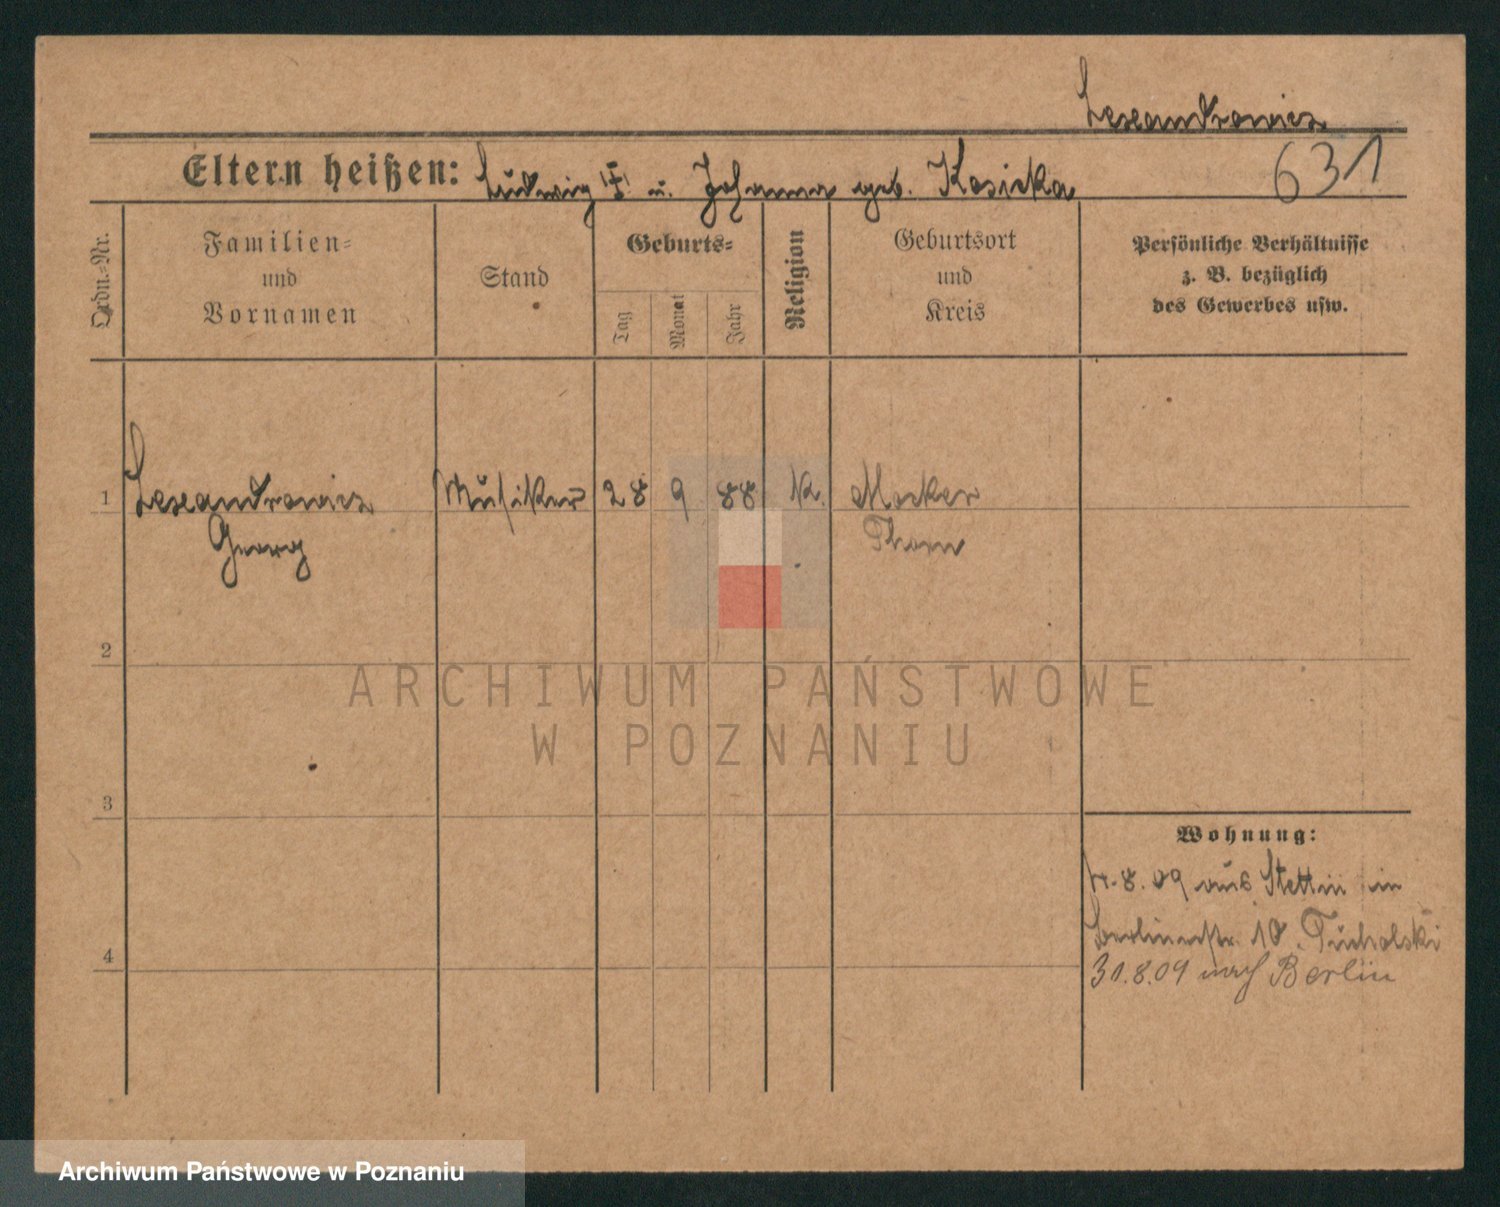 Lexandrowicz
631
Eltern heißen: Ludwig u. Johanna geb. Kosicka
Ordn.-Nr.
Familien-
und
Vornamen
Stand
Geburts-
Tag
Monat
Jahr
Religion
Geburtsort
und
Kreis
Persönliche Verhältnisse
z. B. bezüglich
des Gewerbes usw.
1 Lexandrowicz Musiker 28 9 88 K. Mocker
Georg Thorn
2
ARCHIWUM PAŃSTWOWE
W POZNANIU
3
Wohnung:
8.09 aus Stettin in
Berlinerstr. 10. Tucholski
4
31.8.09 nach Berlin
Archiwum Państwowe w Poznaniu